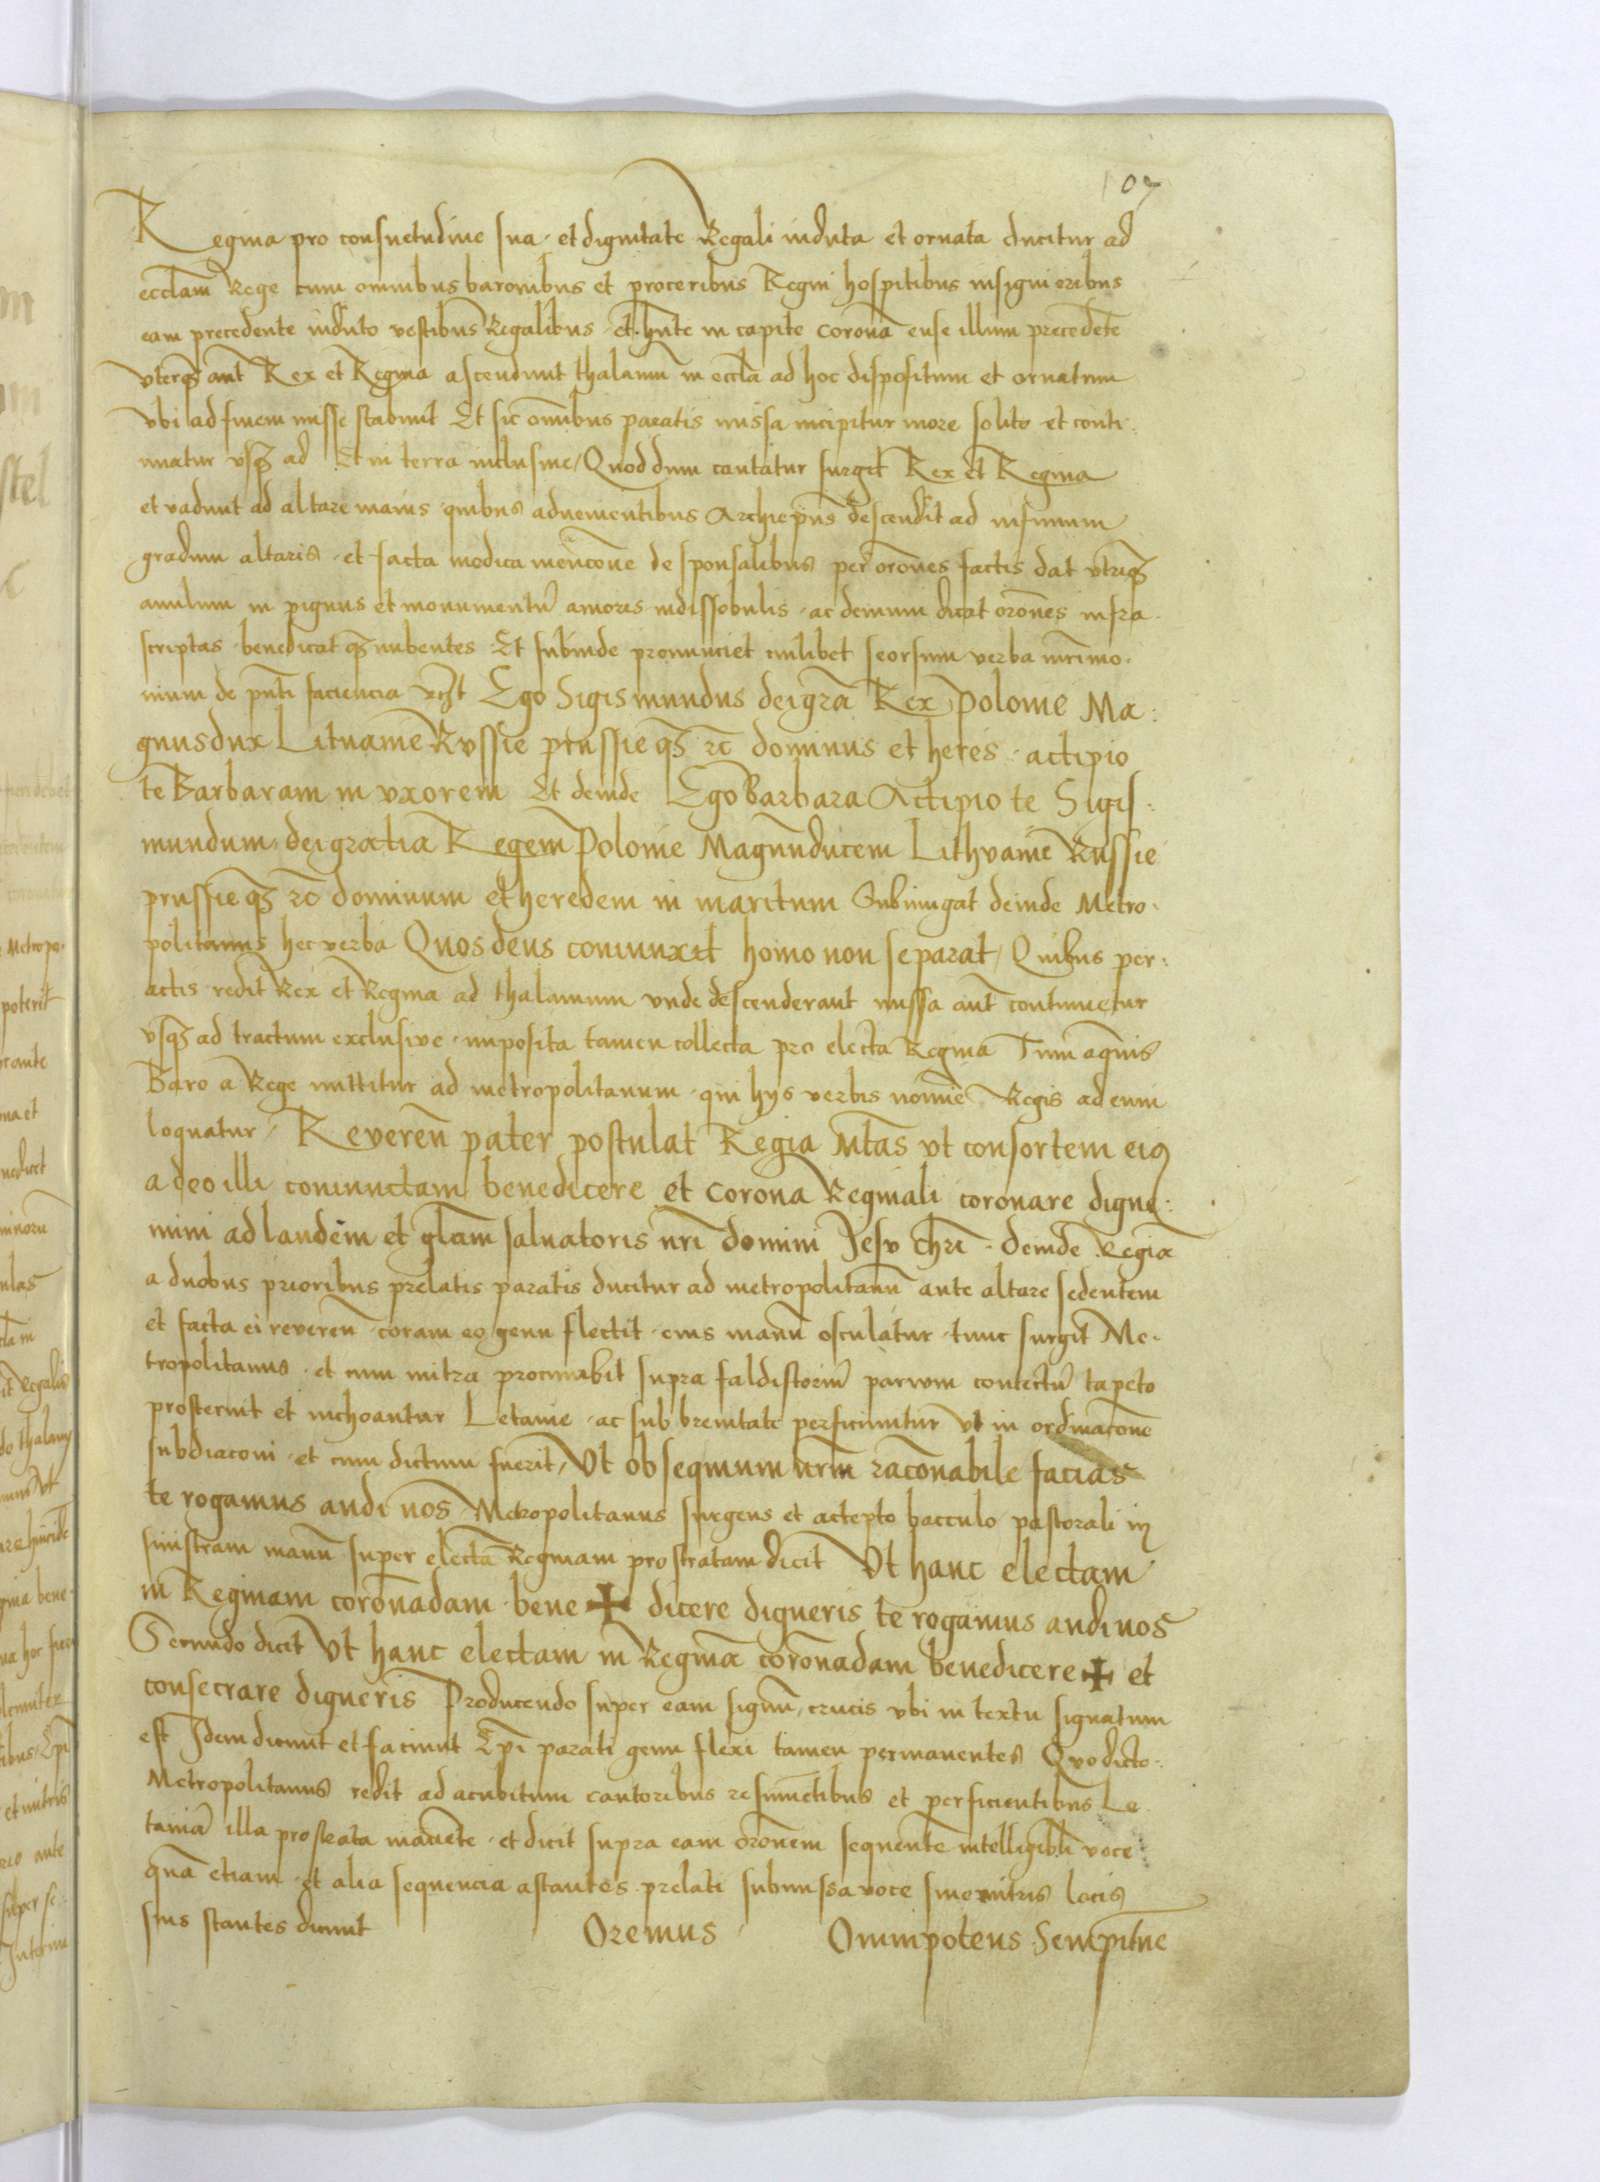 107
Regina pro consuetudine sua · et dignitate Regali induta et ornata ducitur ad
eccl̄am Rege cum omnibus baronibus et proceribus Regni hospitibus insignioribus
eam precedente induto vestibus Regalibus · et hn̄te in capite coronā ense illum precedēte
vterqꝫ aut̄ Rex et Regina ascendunt thalamū in eccl̄a ad hoc dispositum et ornatum
vbi ad finem misse stabunt Et sic om̄ibus paratis missa incipitur more solito et conti:
nuatur vsqꝫ ad Et in terra inclusiue / Quod dum cantatur surgit Rex et Regina
et vadunt ad altare maius quibus aduenientibus Archiep̄us descendit ad infimum
gradum altaris · et facta modica mencōne de sponsalibus per orōnes factis dat vtriqꝫ
anulum in pignus et monumentū amoris indissobulis · ac demum dicat orōnes infra
scriptas · benedicatqꝫ nubentes Et subinde pronunciet cuilibet seorsum verba mr̄imo·
nium de pn̄ti faciencia vꝫt Ego Sigismundus dei gr̄a Rex Polonie Ma:
gnus dux Lituanie Russie prussieqꝫ ⁊c̄ dominus et heres · actipio
te Barbaram in vxorem Et deinde Ego Barbara Actipio te Sigis:
mundum dei gratia Regem Polonie Magnūducem Lithvanie Russie
prussieqꝫ ⁊c̄ dominum et heredem in maritum Subiungat deinde Metro·
politanus hec verba Quos deus coniunxit homo non separat / Quibus per:
actis redit Rex et Regina ad thalamum vnde descenderant missa aut̄ continuetur
vsqꝫ ad tractum exclusive · imposita tamen collecta pro electa Regina Tum aquis
Baro a Rege mittitur ad metropolitanum · qui hys verbis nomine Regis ad eum
loquatur / Reveren̄ pater postulat Regia Mt̄as vt consortem eiꝯ
a deo illi coniunctam benedicere et corona Reginali coronare digne:
mini ad laudem et gl̄am saluatoris nr̄i domini Jesv chr̄i · deinde Regina
a duobus prioribus prelatis paratis ducitur ad metropolitanū ante altare sedentem
et facta ei reveren̄ · coram eo genu flectit · eius manū osculatur · tunc surgit Me·
tropolitanus · et cum mitra procumbit supra faldistoriū parvum contectū tapeto
prosternit et inchoantur Letanie · ac sub breuitate perficiuntur vt in ordinacōne
subdiaconi · et cum dictum fuerit / Vt obsequium nr̄m racōnabile facias
te rogamus audi nos Metropolitanus surgens et actepto bacculo pastorali in
sinistram manū super electā Reginam prostratam dicit Vt hanc electam
in Reginam corōnadam bene ✠ dicere digneris te rogamus audi nos
Secundo dicit Vt hanc electam in Reginā corōnadam benedicere ✠ et
consecrare digneris Producendo super eam signū crucis vbi in textu signatum
est Idem dicunt et faciunt Ep̄i parati genu flexi tamen permanentes Quo dicto·
Metropolitanus redit ad acubitum cantoribus resumētibus et perficientibus Le
taniā illa prostrata manēte · et dicit supra eam orōnem sequentē intelligibili voce
quā etiam · et alia sequencia astantes prelati submissa voce sine mitris locis
suis stantes dicunt Oremus Omnipotens Sempitne